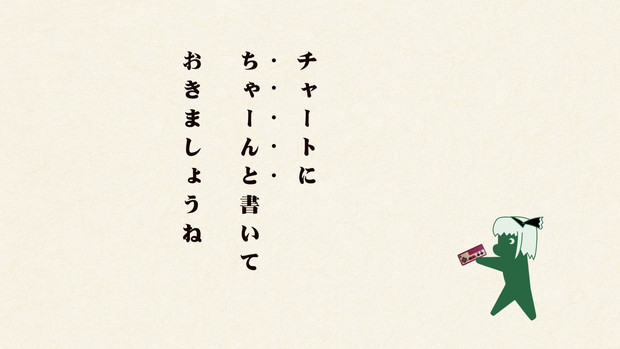 チャートに
ちゃーんと書いて
おきましょうね